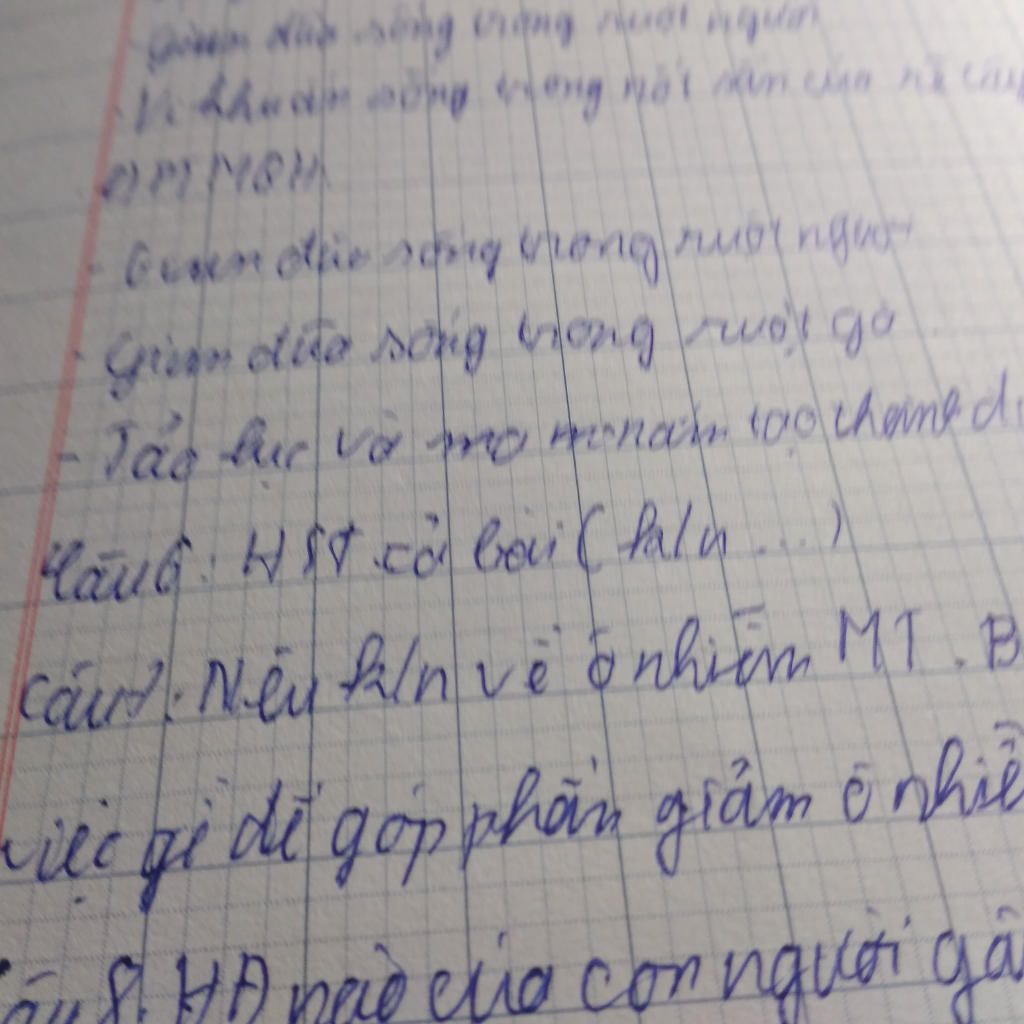 Giun đũa sống trong ruột người
Vi khuẩn sống trong nốt sần của rễ cây
- Giun đũa sống trong ruột người
- Giun đũa sống trong ruột gà
- Tảo lục và nấm tạo thành
Câu 6: HST có bài ( k/n ... )
Câu 7: Nêu k/n về ô nhiễm MT. B
việc gì để góp phần giảm ô nhiễ
Câu 8. HĐ nào của con người gâ